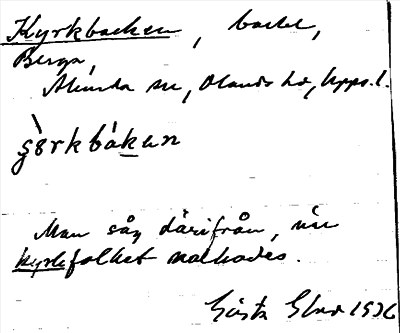 Kyrkbacken, backe,
Berga,
Alunda sn, Olands hd, Upps. l.
Man såg därifrån, när
kyrkfolket nalkades.
Gösta 1936